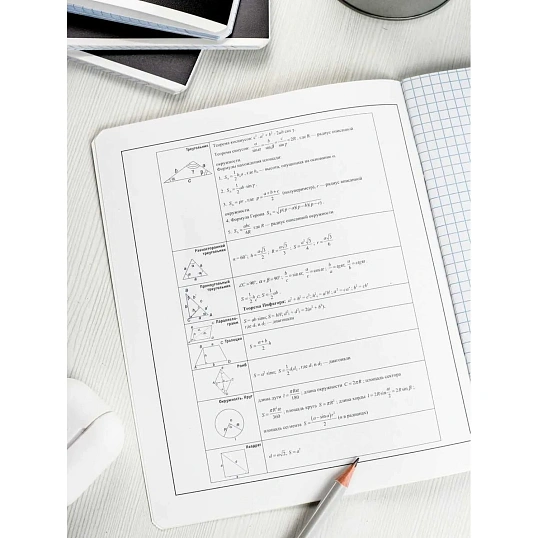 Треугольник
Теорема косинусов: c² = a² + b² - 2ab cos γ.
Теорема синусов: a/sin α = b/sin β = c/sin γ = 2R, где R — радиус описанной
окружности.
Формулы нахождения площади:
1. Sₐ = 1/2 hₐ a, где hₐ — высота, опущенная на основание
2. = 1/2 ab sin γ.
3. = pr, где p = (a + b + c)/2 (полупериметр), r — радиус вписанной
окружности
4. Формула Герона = √p(p−a)(p−b)(p−c).
5. = abc/4R где R — радиус описанной окружности.
Равносторонний
треугольник
α = 60°; h = a√3/2; R = a√3/3; S = a²√3/4; r = a√3/6.
Прямоугольный
треугольник
∠C = 90°, α + β = 90°
S = 1/2 h c; S = 1/2 ab.
Теорема Пифагора: a² + b² = c²
Параллело-
грамм
S = ab sin α; S = ha; d₁² + d₂² = 2(a² + b²),
где d₁ и d₂ — диагонали
Трапеция
S = (a + b)/2 h
Ромб
S = a² sin α; S = 1/2 d₁d₂, где d₁ и d₂ — диагонали
Окружность. Круг
длина дуги l = πRα/180; длина окружности C = 2πR; площадь сектора
S = πR²α/360; площадь круга S = πR²; длина хорды
площадь сегмента S = (α − sin α)r²/2 (α в радианах)
Квадрат
d = a√2, S = a²